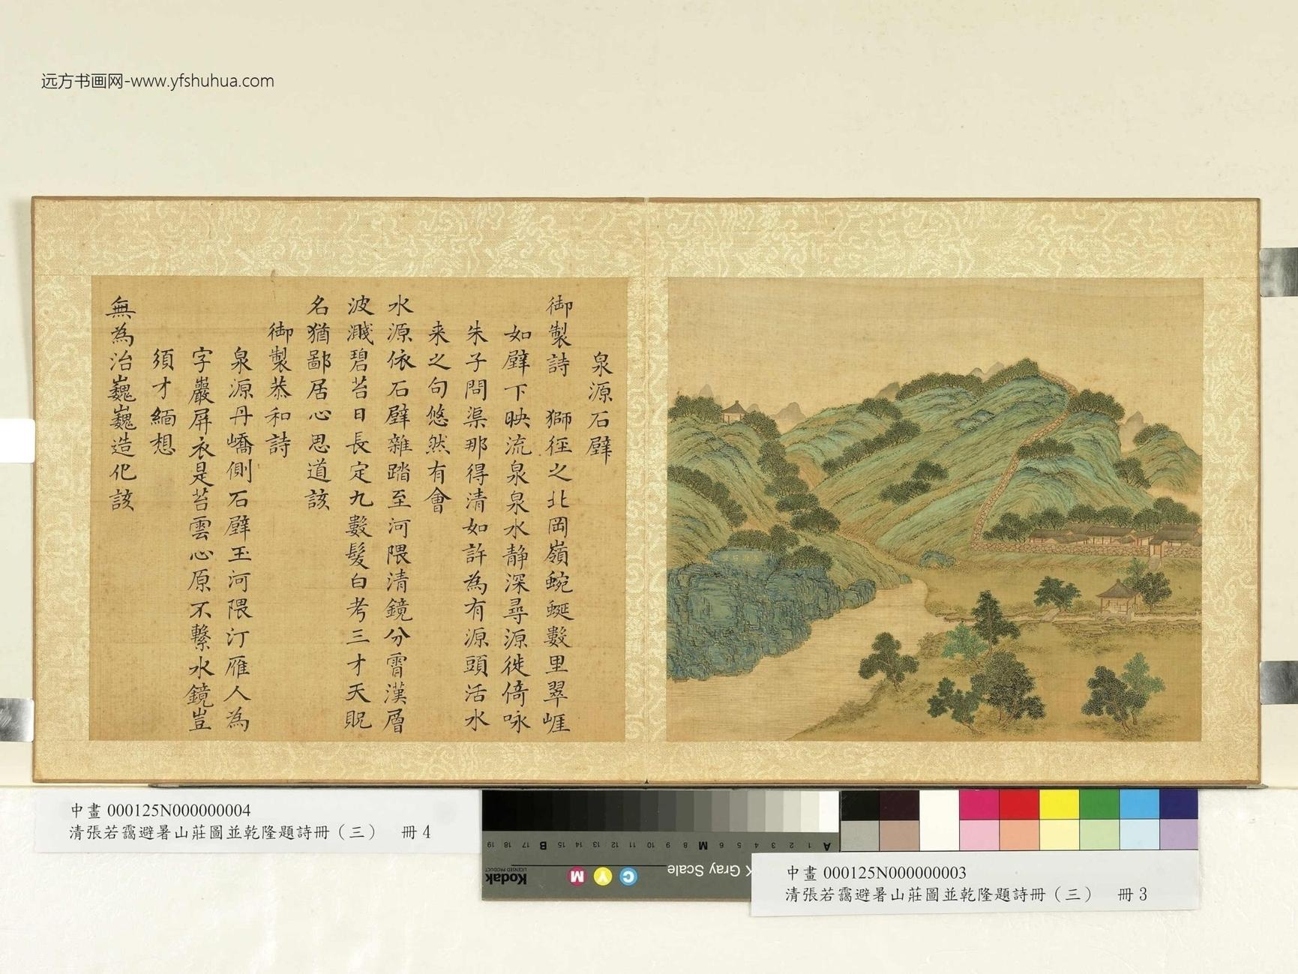 远方书画网-www.yfshuhua.com
泉源石壁
御製詩　獅徑之北岡嶺蜿蜒數里翠崕
如壁下映流泉泉水静深尋源徙倚咏
朱子問渠那得清如許為有源頭活水
来之句悠然有會
水源依石壁雜踏至河隈清鏡分霄漢層
波濺碧苔日長定九數髮白考三才天貺
名猶鄙居心思道該
御製恭和詩
泉源丹嶠側石壁玉河隈汀雁人為
字巖屏衣是苔雲心原不繫水鏡豈
須才緬想
無為治巍巍造化該
中畫 000125N000000004
清張若靄避暑山莊圖並乾隆題詩冊（三）　冊 4
19 18 17 B 16 15 14 13 12 11 10 9 8 M 7 6 5 4 3 2 1 A
Kodak
LICENSED PRODUCT
M Y C
Gray Scale
中畫 000125N000000003
清張若靄避暑山莊圖並乾隆題詩冊（三）　冊 3